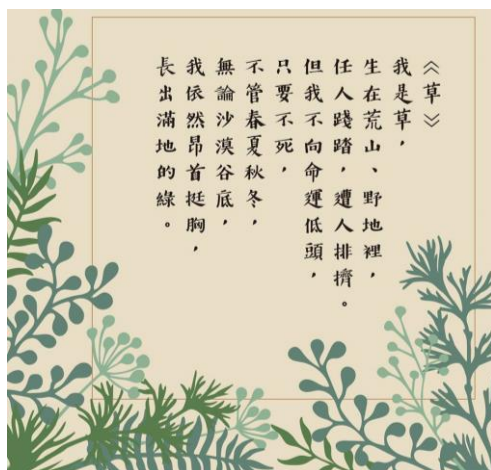 《草》
我是草，
生在荒山、野地裡，
任人踐踏，遭人排擠。
但我不向命運低頭，
只要不死，
不管春夏秋冬，
無論沙漠谷底，
我依然昂首挺胸，
長出滿地的綠。